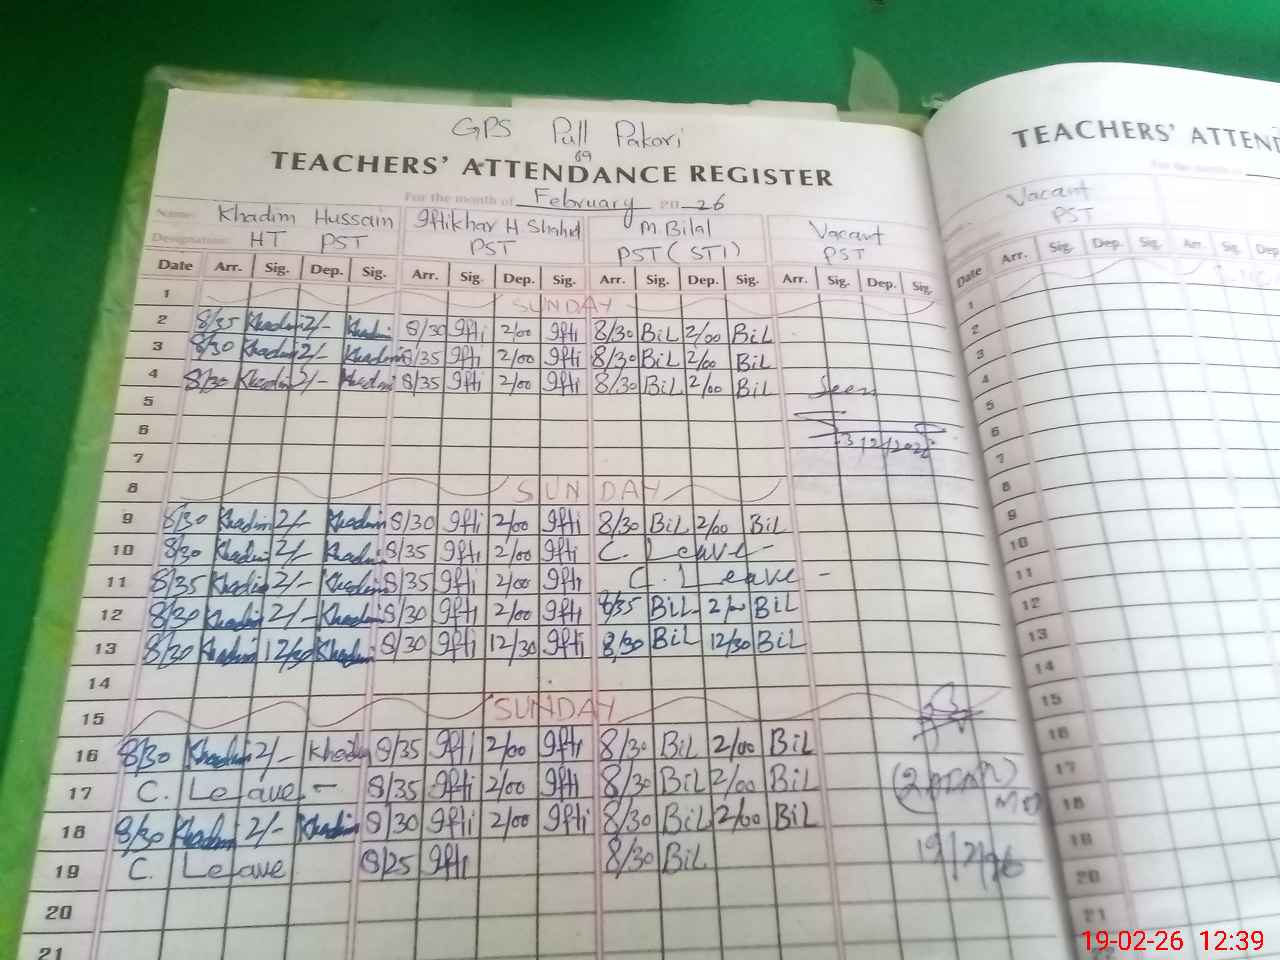 GPS Pull Pakori
TEACHERS' ATTENDANCE REGISTER
For the month of February 20 26
Name: Khadim Hussain Iftikhar H Shahid M. Bilal Vacant
Designation: HT PST PST PST (STI) PST
Date Arr. Sig. Dep. Sig. Arr. Sig. Dep. Sig. Arr. Sig. Dep. Sig. Arr. Sig. Dep. Sig.
1 SUNDAY
2 8/35 Khadim 2/- Khadim 8/30 Ifti 2/00 Ifti 8/30 BiL 2/00 BiL
3 8/30 Khadim 2/- Khadim 8/35 Ifti 2/00 Ifti 8/30 BiL 2/00 BiL
4 8/30 Khadim 2/- Khadim 8/35 Ifti 2/00 Ifti 8/30 BiL 2/00 BiL Seen
5
6
7
8 SUNDAY
9 8/30 Khadim 2/- Khadim 8/30 Ifti 2/00 Ifti 8/30 BiL 2/00 BiL
10 8/30 Khadim 2/- Khadim 8/35 Ifti 2/00 Ifti C. Leave -
11 8/35 Khadim 2/- Khadim 8/35 Ifti 2/00 Ifti C. Leave -
12 8/30 Khadim 2/- Khadim 8/30 Ifti 2/00 Ifti 8/35 BiL 2/00 BiL
13 8/30 Khadim 12/30 Khadim 8/30 Ifti 12/30 Ifti 8/30 BiL 12/30 BiL
14
15 SUNDAY
16 8/30 Khadim 2/- Khadim 8/35 Ifti 2/00 Ifti 8/30 BiL 2/00 BiL
17 C. Leave - 8/35 Ifti 2/00 Ifti 8/30 BiL 2/00 BiL
18 8/30 Khadim 2/- Khadim 8/30 Ifti 2/00 Ifti 8/30 BiL 2/00 BiL
19 C. Leave 8/25 Ifti 8/30 BiL 19/2/26
20
21
TEACHERS' ATTEND
Vacant
PST
Date Arr. Sig. Dep. Sig. Arr. Sig. Dep.
1
2
3
4
5
6
7
8
9
10
11
12
13
14
15
16
17
18
19
20
21
19-02-26 12:39